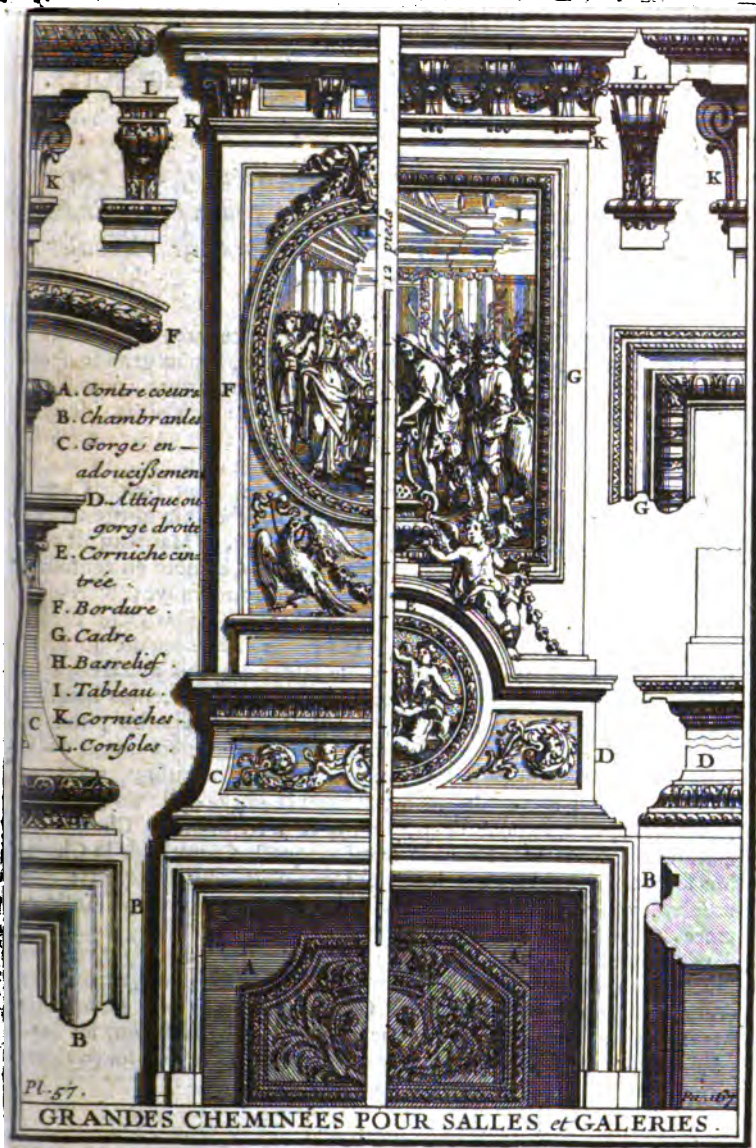 L
L
K
K
K
K
H
12 pieds
F
F
G
A. Contre coeurs
B. Chambranles
C. Gorge en —
adoucißement
D. Attique ou
gorge droite
E. Corniche cin
trée.
F. Bordure.
G. Cadre
H. Basrelief.
I. Tableau.
K. Corniches.
L. Consoles.
G
E
C
C
D
D
B
B
B
A
A
Pl. 57.
GRANDES CHEMINÉES POUR SALLES et GALERIES.